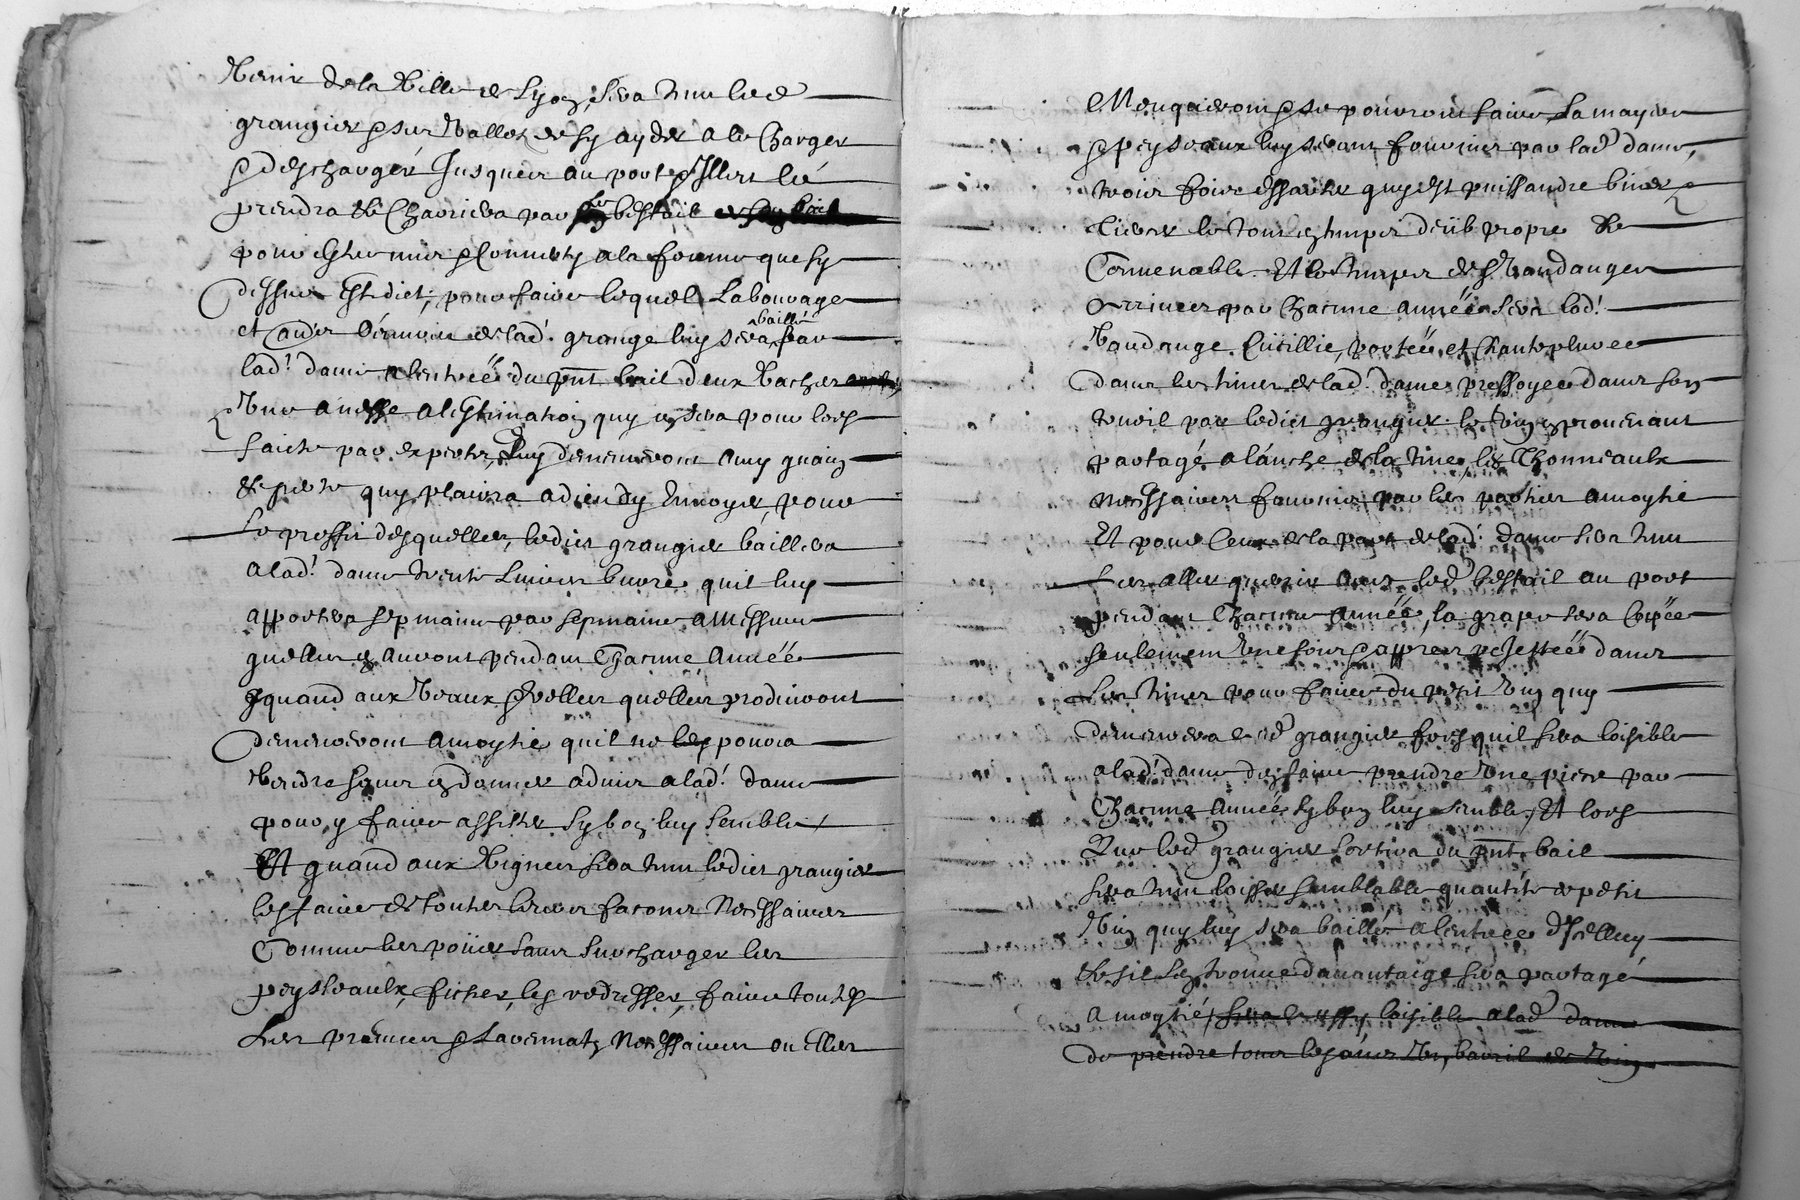 Venir de la Ville de Lyon, sera tenu led
grangier & ses Vallets de sy ayder a le Charger
& descharger Jusques au port & Illec le
prendra & Charriera par son bestail
pour estre mis & Converty a la forme que sy
dessus Est dict; pour faire lequel Labourage
et autre de lad.t grange luy sera baillé par
lad.t dame a lentrée du pnt bail deux Vaches
Une anesse a lestimation quy en sera pour lors
faicte par expertz, Quy demeureront a my gaing
& perte quy plairra a dieu dy Envoyer, pour
Le proffit desquelles, ledict grangier baillera
a lad.t dame trente Livres burre quil luy
apportera sepmaine par sepmaine a Mesure
quelles en auront pendant Chacune Année
& quand aux Veaux & velles quelles produiront
demeureront a moytie quil ne les pourra
Vendre sans en donner advis a lad.t dame
pour y faire assister sy bon luy semble /
Et quand aux Vignes sera tenu ledict grangier
les faire de toutes leurs facons Necessaires
Comme les poüer sans surcharger les
peysseaulx, ficher, les redresser, faire toutes
Les preuves & Necessaires ou Elles
Manqueront & se pourront faire, La mayere
& peysseaux luy seront fournies par lad.e dame,
trois foire essarter quy est puissandre biner
tierser le tout en temps deüb propre &
Convenable. Et le temps des Vandanges
Arrivees par Chacune année sera lad.t
Vandange Cuëillie, portée et Chantepluree
dans les tines de lad.t dame, pressoyee dans son
treuil par ledict grangier le Vin en provenant
partagé a lanche de la tine, les Thonneaulx
Necessaires fournis par les parties a moytie
Et pour Ceux de la part de lad.t dame sera tenu
Les aller querir avec led bestail au port
pendant Chacune année, la grape sera Copée
seulement Une fois & appres rejettée dans
Les tines pour faire du petit Vin quy
demeurera aud grangier fors quil sera loisible
a lad.t dame den faire prendre Une piece par
Chacune année sy bon luy semble, Et lors
Que led grangier sortira du pnt bail
sera tenu laisser semblable quantité de petit
Vin quy luy sera baillé a lentree dIcelluy
& sil sen trouve davantaige sera partagé
a moytié, sera loisible a lad dame
de prendre tous les ans Un barril de Vin